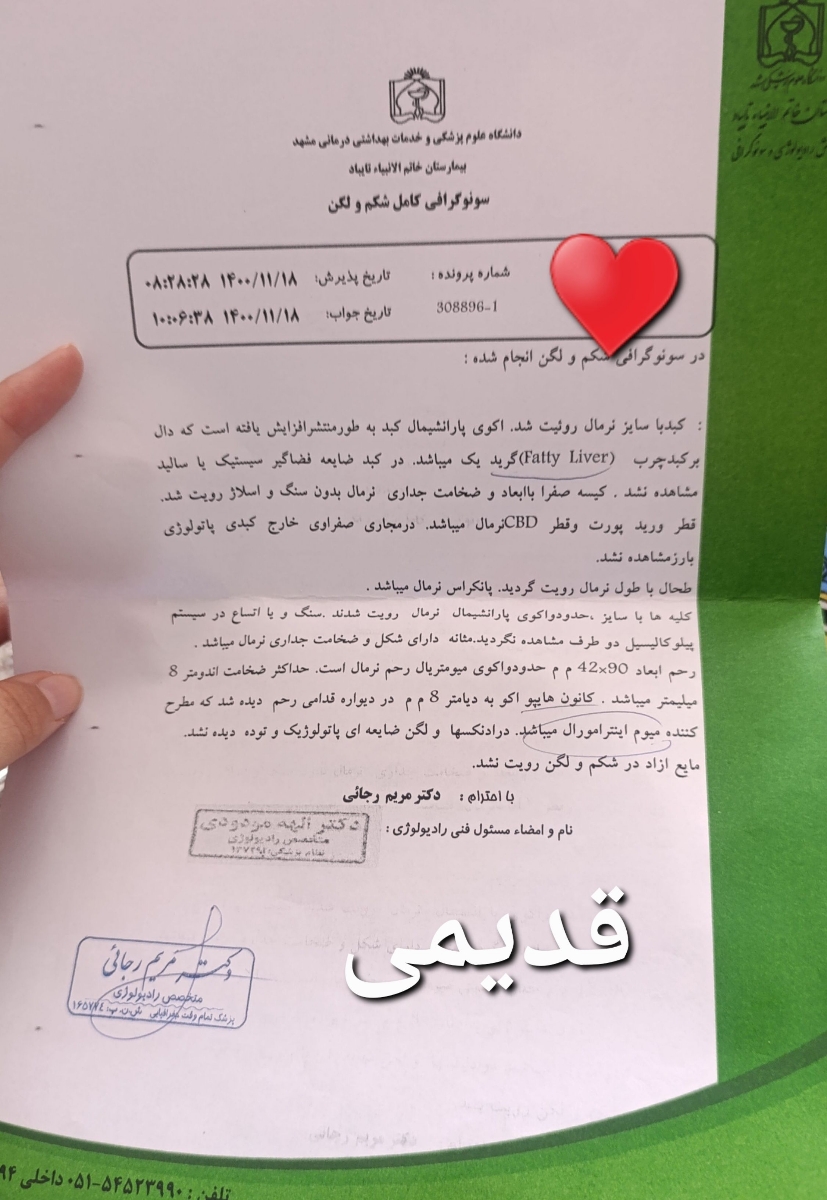 دانشگاه علوم پزشکی و خدمات بهداشتی درمانی مشهد
بیمارستان خاتم الانبیاء تایباد
سونوگرافی کامل شکم و لگن
شماره پرونده :
308896-1
تاریخ پذیرش: ۱۴۰۰/۱۱/۱۸ ۰۸:۲۸:۲۸
تاریخ جواب: ۱۴۰۰/۱۱/۱۸ ۱۰:۰۶:۳۸
در سونوگرافی شکم و لگن انجام شده :
: کبدبا سایز نرمال روئیت شد. اکوی پارانشیمال کبد به طورمنتشرافزایش یافته است که دال
برکبدچرب (Fatty Liver)گرید یک میباشد. در کبد ضایعه فضاگیر سیستیک یا سالید
مشاهده نشد . کیسه صفرا باابعاد و ضخامت جداری نرمال بدون سنگ و اسلاژ رویت شد.
قطر ورید پورت وقطر CBDنرمال میباشد. درمجاری صفراوی خارج کبدی پاتولوژی
بارزمشاهده نشد.
طحال با طول نرمال رویت گردید. پانکراس نرمال میباشد .
کلیه ها با سایز ،حدودواکوی پارانشیمال نرمال رویت شدند .سنگ و یا اتساع در سیستم
پیلوکالیسیل دو طرف مشاهده نگردید.مثانه دارای شکل و ضخامت جداری نرمال میباشد .
رحم ابعاد 90×42 م م حدودواکوی میومتریال رحم نرمال است. حداکثر ضخامت اندومتر 8
میلیمتر میباشد . کانون هایپو اکو به دیامتر 8 م م در دیواره قدامی رحم دیده شد که مطرح
کننده میوم اینترامورال میباشد. درادنکسها و لگن ضایعه ای پاتولوژیک و توده دیده نشد.
مایع ازاد در شکم و لگن رویت نشد.
با احترام : دکتر مریم رجائی
نام و امضاء مسئول فنی رادیولوژی :
دکتر الهه مودودی
متخصص رادیولوژی
قدیمی
دکتر مریم رجائی
متخصص رادیولوژی
تلفن : ۵۴۵۲۳۹۹۰-۰۵۱ داخلی